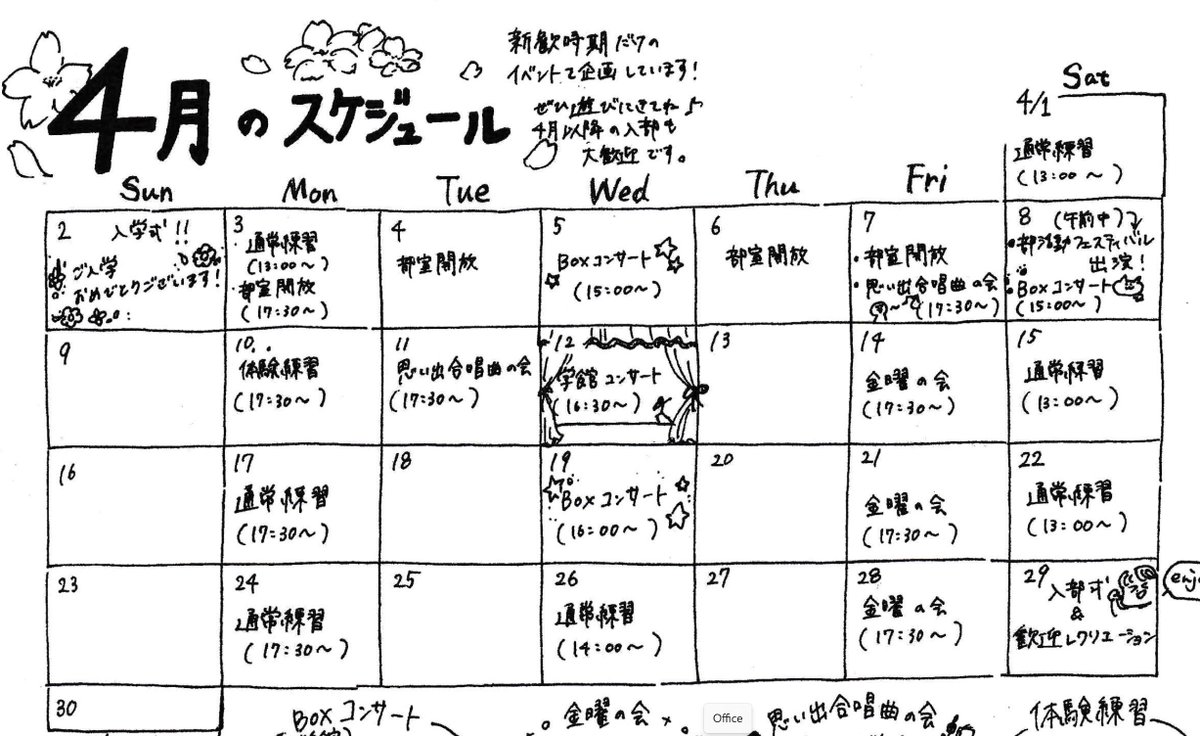 4月のスケジュール
新歓時期だけの
イベントで企画しています!
ぜひ遊びにきてね♪
4月以降の入部も
大歓迎です。
Sun Mon Tue Wed Thu Fri Sat
4/1
通常練習
(13:00~)
2 入学式!!
ご入学
おめでとうございます!
3
通常練習
(13:00~)
部室開放
(17:30~)
4
部室開放
5
Boxコンサート
(15:00~)
6
部室開放
7
部室開放
思い出合唱曲の会
(17:30~)
8 (午前中)
部活動フェスティバル
出演!
Boxコンサート
(15:00~)
9
10
体験練習
(17:30~)
11
思い出合唱曲の会
(17:30~)
12
学館コンサート
(16:30~)
13
14
金曜の会
(17:30~)
15
通常練習
(13:00~)
16
17
通常練習
(17:30~)
18
19
Boxコンサート
(16:00~)
20
21
金曜の会
(17:30~)
22
通常練習
(13:00~)
23
24
通常練習
(17:30~)
25
26
通常練習
(14:00~)
27
28
金曜の会
(17:30~)
29
入部式
&
歓迎レクリエーション
30
Boxコンサート
金曜の会
思い出合唱曲の会
体験練習
Office